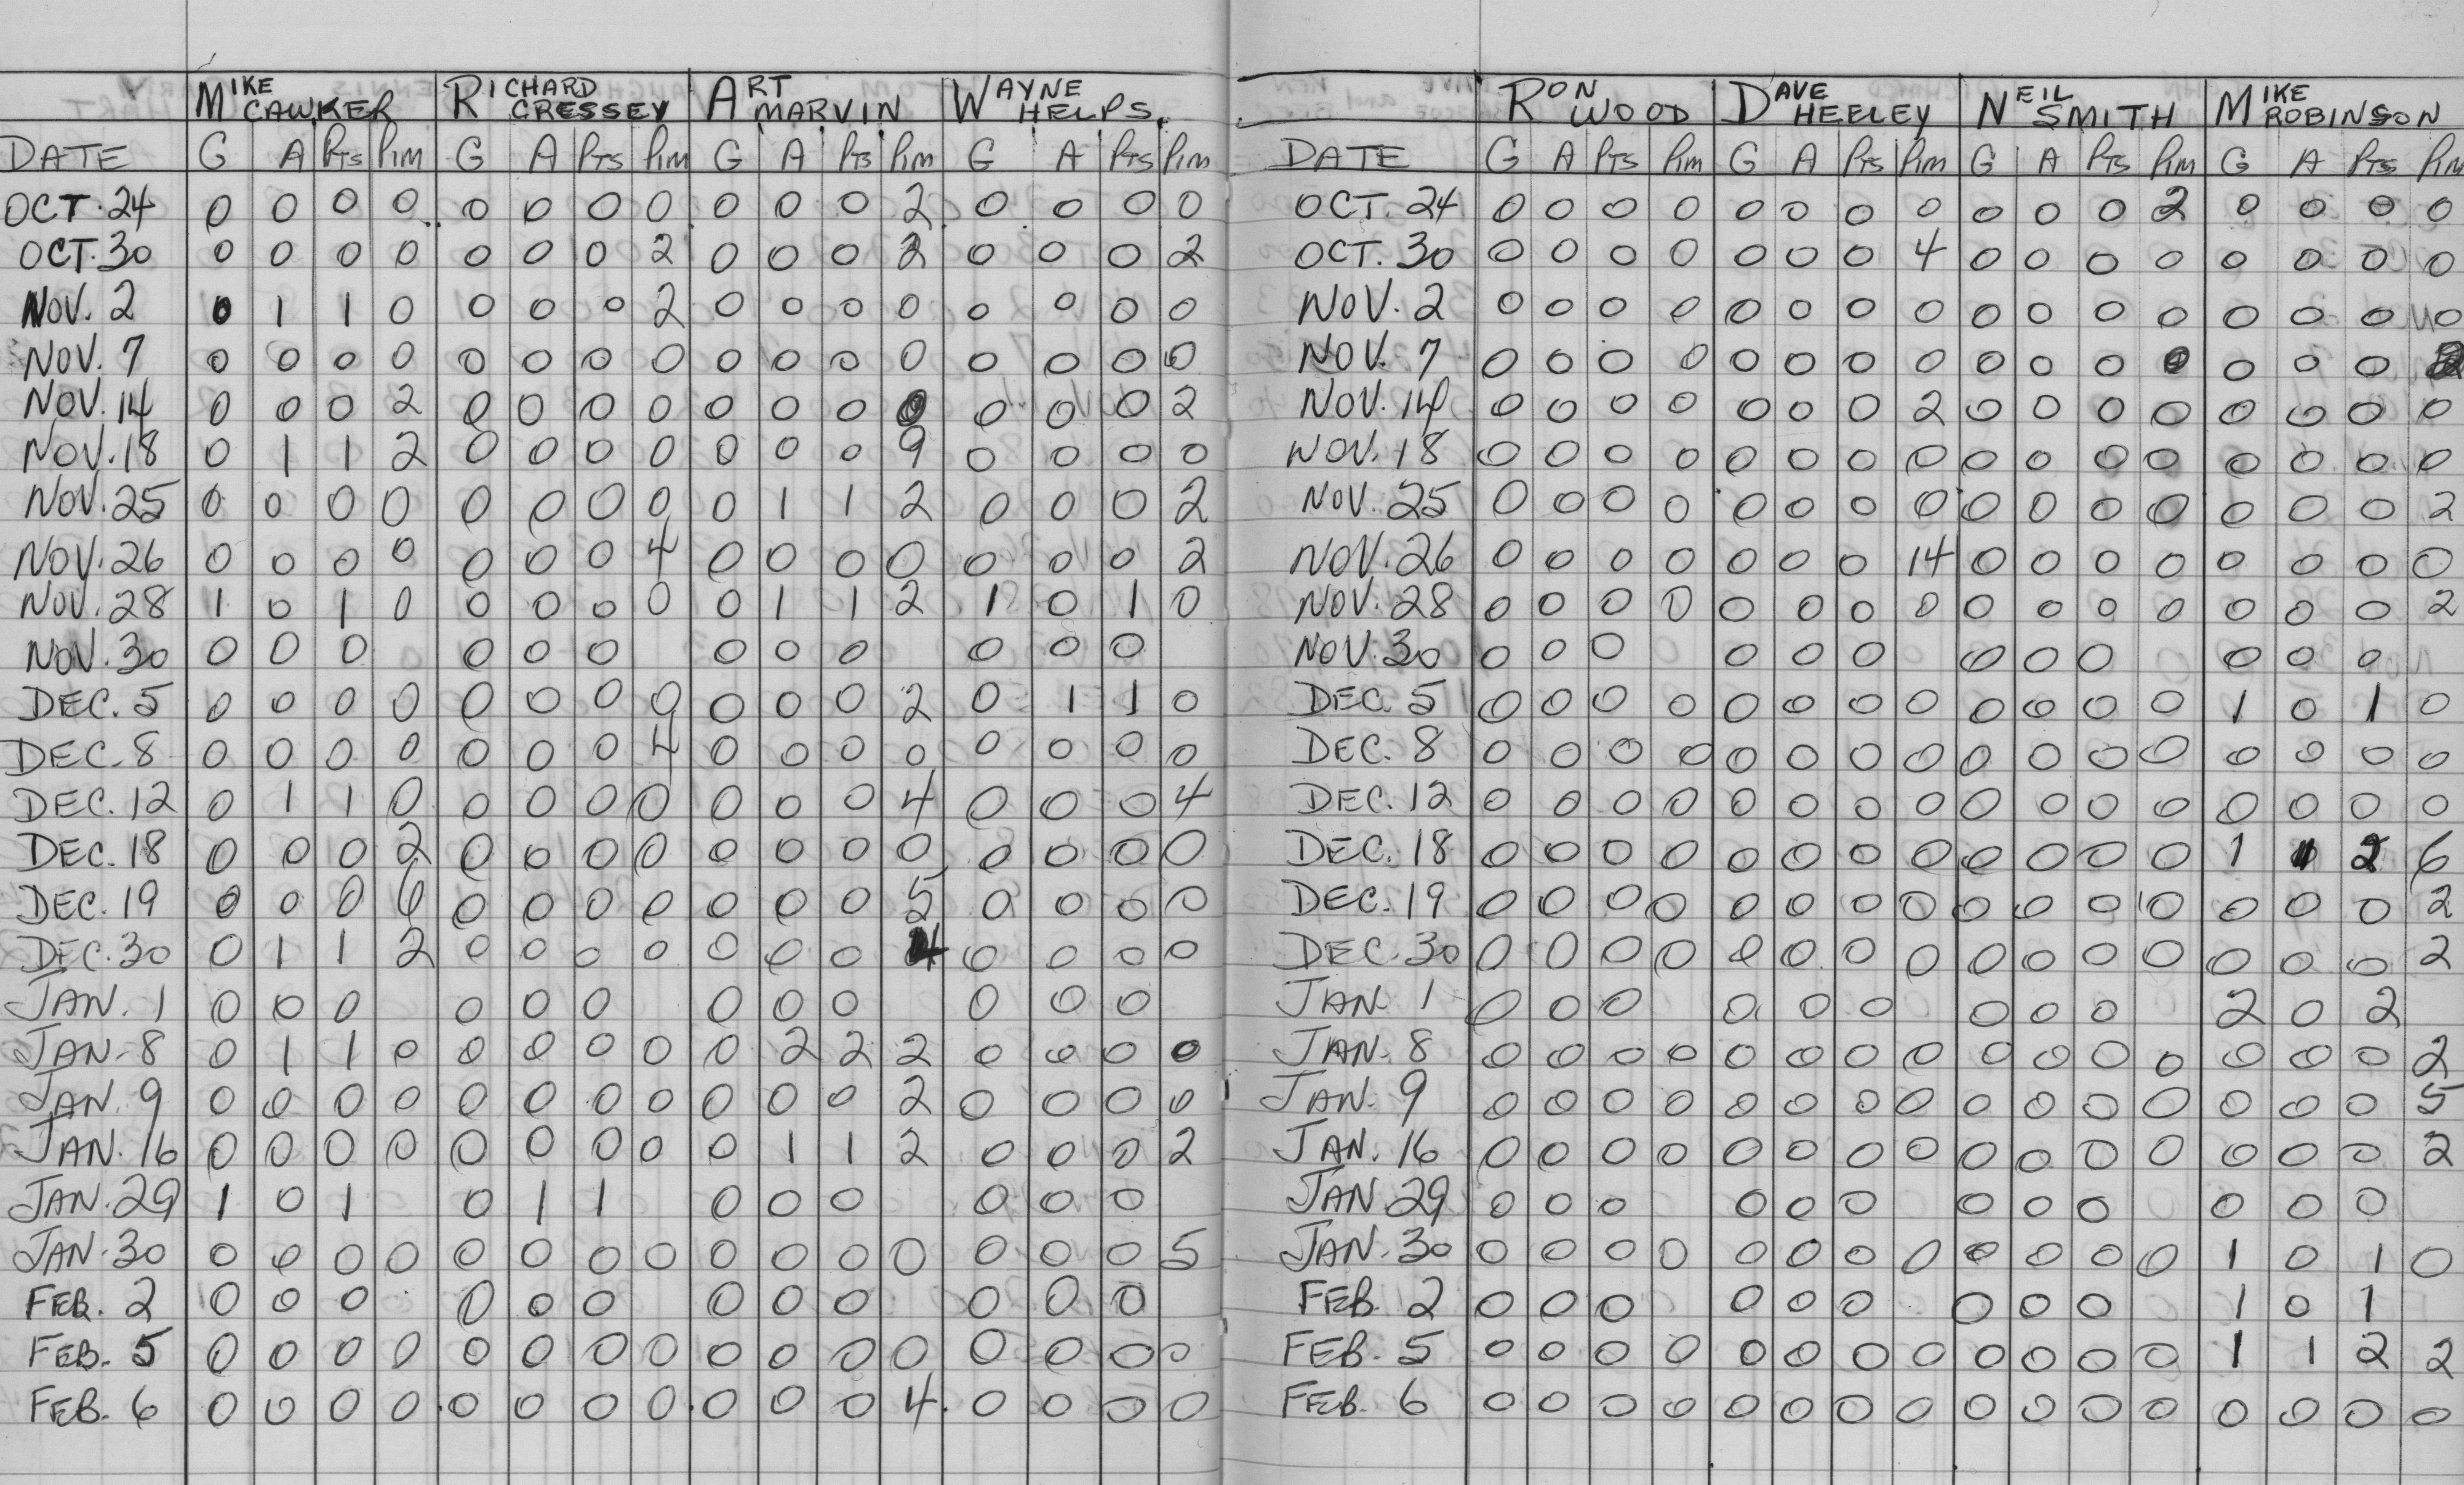 MIKE CAWKER RICHARD CRESSEY ART MARVIN WAYNE HELPS
DATE G A PTS PIM G A PTS PIM G A PTS PIM G A PTS PIM
OCT. 24 0 0 0 0 0 0 0 0 0 0 0 2 0 0 0 0
OCT. 30 0 0 0 0 0 0 0 2 0 0 0 2 0 0 0 2
NOV. 2 0 1 1 0 0 0 0 2 0 0 0 0 0 0 0 0
NOV. 7 0 0 0 0 0 0 0 0 0 0 0 0 0 0 0 0
NOV. 14 0 0 0 2 0 0 0 0 0 0 0 0 0 0 0 2
NOV. 18 0 1 1 2 0 0 0 0 0 0 0 9 0 0 0 0
NOV. 25 0 0 0 0 0 0 0 0 0 1 1 2 0 0 0 2
NOV. 26 0 0 0 0 0 0 0 4 0 0 0 0 0 0 0 2
NOV. 28 1 0 1 0 0 0 0 0 0 1 1 2 1 0 1 0
NOV. 30 0 0 0 0 0 0 0 0 0 0 0 0
DEC. 5 0 0 0 0 0 0 0 0 0 0 0 2 0 1 1 0
DEC. 8 0 0 0 0 0 0 0 4 0 0 0 0 0 0 0 0
DEC. 12 0 1 1 0 0 0 0 0 0 0 0 4 0 0 0 4
DEC. 18 0 0 0 2 0 0 0 0 0 0 0 0 0 0 0 0
DEC. 19 0 0 0 0 0 0 0 0 0 0 5 0 0 0 0
DEC. 30 0 1 1 2 0 0 0 0 0 0 0 4 0 0 0 0
JAN. 1 0 0 0 0 0 0 0 0 0 0 0 0
JAN. 8 0 1 1 0 0 0 0 0 0 2 2 2 0 0 0 0
JAN. 9 0 0 0 0 0 0 0 0 0 0 0 2 0 0 0 0
JAN. 16 0 0 0 0 0 0 0 0 0 1 1 2 0 0 0 2
JAN. 29 1 0 1 0 1 1 0 0 0 0 0 0
JAN. 30 0 0 0 0 0 0 0 0 0 0 0 0 0 0 0 5
FEB. 2 0 0 0 0 0 0 0 0 0 0 0 0
FEB. 5 0 0 0 0 0 0 0 0 0 0 0 0 0 0 0 0
FEB. 6 0 0 0 0 0 0 0 0 0 0 0 4 0 0 0 0
RON WOOD DAVE HEELEY NEIL SMITH MIKE ROBINSON
DATE G A PTS PIM G A PTS PIM G A PTS PIM G A PTS PIM
OCT. 24 0 0 0 0 0 0 0 0 0 0 0 2 0 0 0 0
OCT. 30 0 0 0 0 0 0 0 4 0 0 0 0 0 0 0 0
NOV. 2 0 0 0 0 0 0 0 0 0 0 0 0 0 0 0 0
NOV. 7 0 0 0 0 0 0 0 0 0 0 0 0 0 0 0
NOV. 14 0 0 0 0 0 0 0 2 0 0 0 0 0 0 0 0
NOV. 18 0 0 0 0 0 0 0 0 0 0 0 0 0 0 0 0
NOV. 25 0 0 0 0 0 0 0 0 0 0 0 0 0 0 0 2
NOV. 26 0 0 0 0 0 0 0 14 0 0 0 0 0 0 0 0
NOV. 28 0 0 0 0 0 0 0 0 0 0 0 0 0 0 0 2
NOV. 30 0 0 0 0 0 0 0 0 0 0 0 0
DEC. 5 0 0 0 0 0 0 0 0 0 0 0 0 1 0 1 0
DEC. 8 0 0 0 0 0 0 0 0 0 0 0 0 0 0 0 0
DEC. 12 0 0 0 0 0 0 0 0 0 0 0 0 0 0 0 0
DEC. 18 0 0 0 0 0 0 0 0 0 0 0 0 1 1 2 6
DEC. 19 0 0 0 0 0 0 0 0 0 0 0 0 0 0 0 2
DEC. 30 0 0 0 0 0 0 0 0 0 0 0 0 0 0 0 2
JAN. 1 0 0 0 0 0 0 0 0 0 2 0 2
JAN. 8 0 0 0 0 0 0 0 0 0 0 0 0 0 0 0 2
JAN. 9 0 0 0 0 0 0 0 0 0 0 0 0 0 0 0 5
JAN. 16 0 0 0 0 0 0 0 0 0 0 0 0 0 0 0 2
JAN. 29 0 0 0 0 0 0 0 0 0 0 0 0
JAN. 30 0 0 0 0 0 0 0 0 0 0 0 0 1 0 1 0
FEB. 2 0 0 0 0 0 0 0 0 0 1 0 1
FEB. 5 0 0 0 0 0 0 0 0 0 0 0 0 1 1 2 2
FEB. 6 0 0 0 0 0 0 0 0 0 0 0 0 0 0 0 0